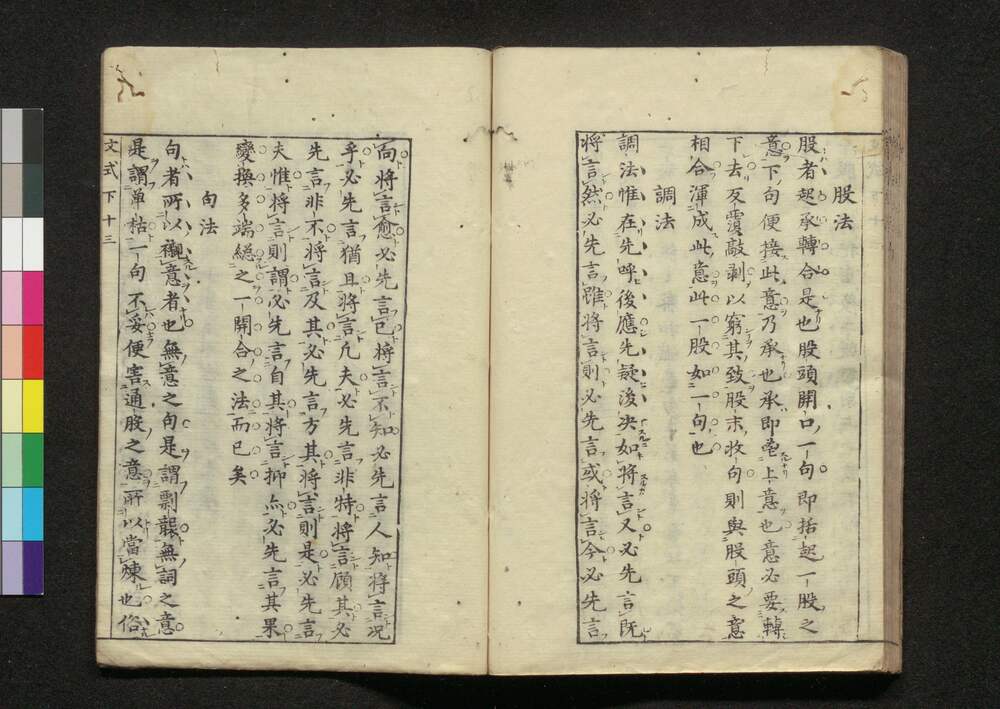 股法
股者起承轉合是也股頭開口一句即括起一股之
意下句便接此意乃承也承即䖏上意也意必要轉
下去反覆敲剥以窮其致股末收句則與股頭之意
相合渾成此意此一股如一句也
調法
調法惟在先呼後應先疑後决如將言又必先言既
將言然必先言雖將言則必先言或將言今必先言
向將言愈必先言已將言不知必先言人知將言况
乎必先言猶且將言凡夫必先言非特將言顧其必
先言非不將言及其必先言方其將言則是必先言
夫惟將言則謂必先言自其將言抑亦必先言其果
變換多端總之一開合之法而已矣
句法
句者所以襯意者也無意之句是謂剽襲無詞之意
是謂單枯一句不妥便害通股之意所以當煉也俗
文式 下 十三